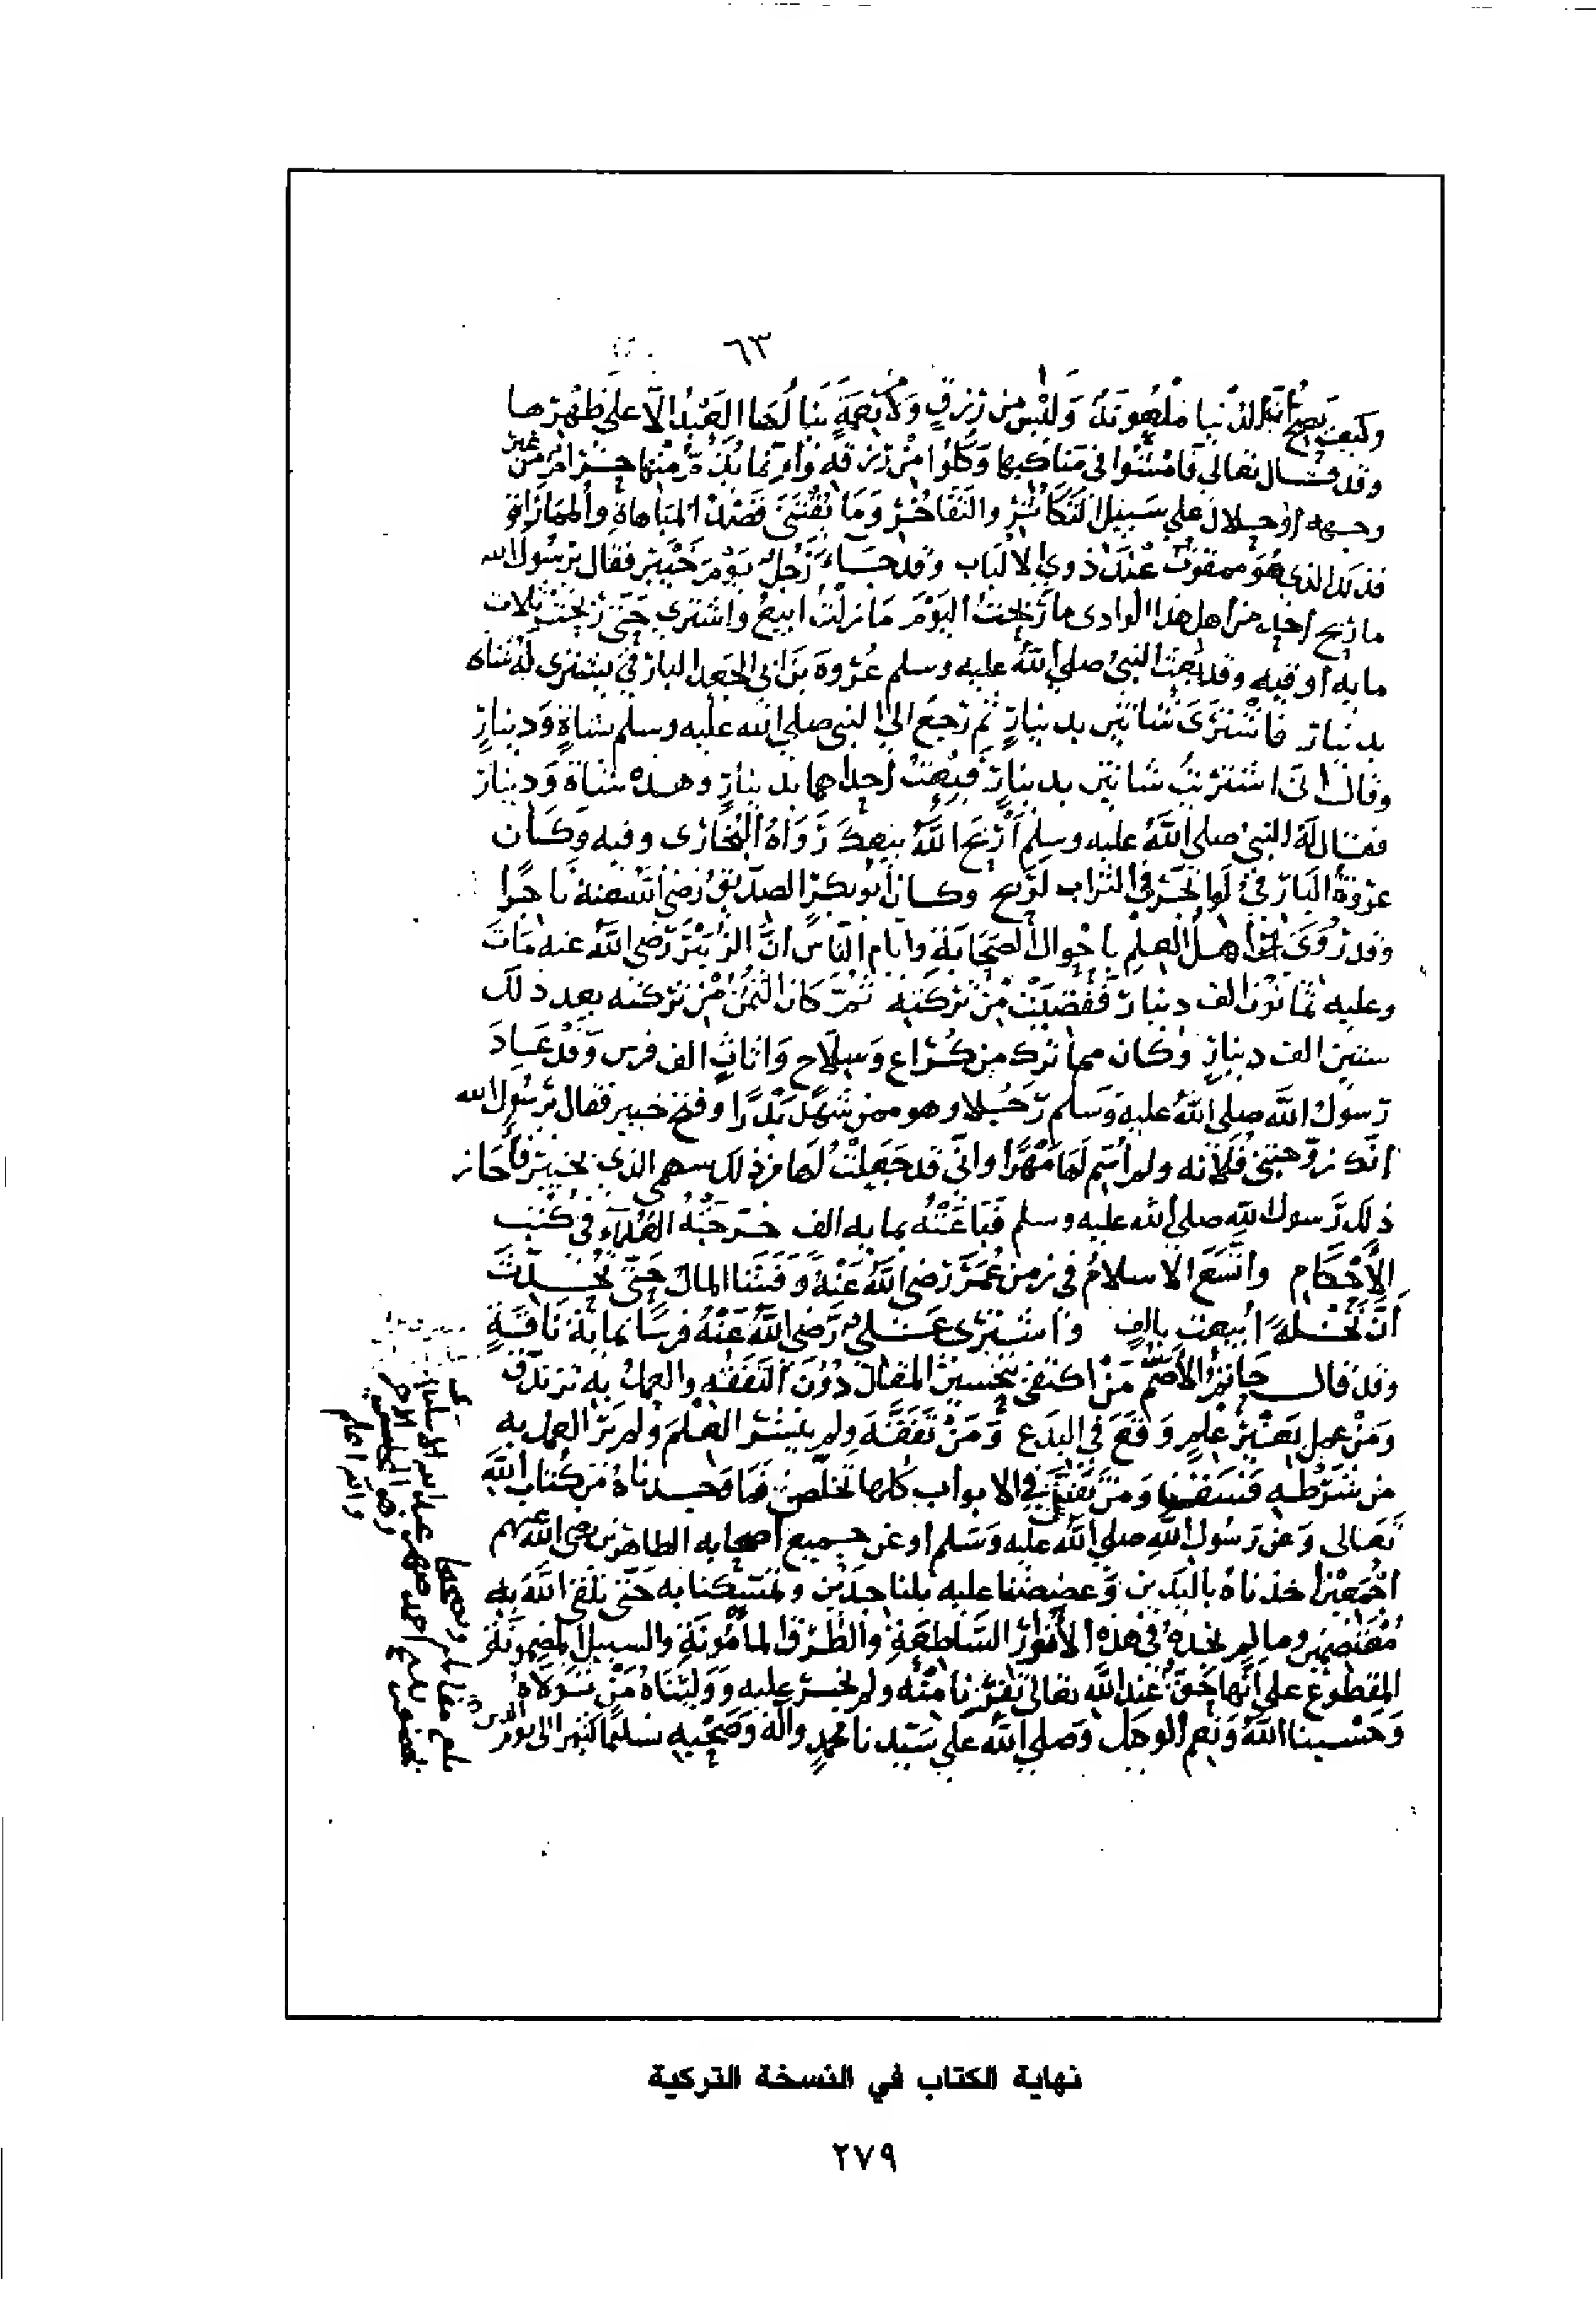 ٦٣
وكيف يصح أن الدنيا ملعونة وليس من رزق ولا نعمة ينالها العبد إلا على ظهرها
وقد قال تعالى فامشوا في مناكبها وكلوا من رزقه وإنما يذم منها حرام من غير
وجهه أو حلال على سبيل التكاثر والتفاخر وما يقتنى قصد المباهاة والمماراة
فذلك الذي هو ممقوت عند ذوي الالباب وقد جاء رجل يوم خيبر فقال يرسول الله
ما ربح أحد من أهل هذا الوادي ما ربحت اليوم ما زلت أبيع واشتري حتى ربحت ثلاث
مايه أوقيه وقد بعث النبي صلى الله عليه وسلم عروة بن أبي الجعد البارقي يشترى له شاه
بدينار فاشترى شاتين بدينار ثم رجع الى النبي صلى الله عليه وسلم بشاة ودينار
وقال اني اشتريت شاتين بدينار فبعت احداهما بدينار وهذه شاة ودينار
فقال له النبي صلى الله عليه وسلم أربح الله بيعك رواه البخارى وفيه وكان
عروة البارقي لو اتجر في التراب لربح وكان أبو بكر الصديق رضي الله عنه تاجرا
وقد روى أهل العلم بأحوال الصحابة وأيام الناس ان الزبير رضي الله عنه مات
وعليه ثمانون الف دينار فقضيت من تركته ثم كان الثمن من تركته بعد ذلك
ستين الف دينار وكان مما ترك من كراع وسلاح وأثاث الف فرس وقد عاد
رسول الله صلى الله عليه وسلم رجلا وهو ممن شهد بدرا وفتح خيبر فقال يرسول الله
انك زوجتني فلانه ولم أسم لها مهرا واني قد جعلت لها من ذلك سهمي الذي بخيبر فأجاز
ذلك رسول الله صلى الله عليه وسلم فباعته بمايه الف خرجه العلماء في كتب
الأحكام واتسع الاسلام في زمن عمر رضي الله عنه وفشا المال حتى
أن نخلة أبيعت بالف واشترى علي رضي الله عنه فرسا بمائة ناقة
وقد قال حاتم الأصم من اكتفى بتحسين المقال دون التفقه والعمل به تزندق
ومن عمل بغير علم وقع في البدع ومن تفقه ولم ينشر العلم ولم ير العمل به
من شرطه تفسق ومن تفنن في الابواب كلها تخلص فما وجدناه من كتاب الله
تعالى وعن رسول الله صلى الله عليه وسلم أو عن جميع أصحابه الطاهرين رضي الله عنهم
أجمعين أخذناه باليدين وعضضنا عليه بالناجذين وتمسكنا به حتى نلقى الله به
معتصمين وما لم نجده في هذه الأنوار الساطعة والطرق المأمونة والسبيل المضمونة
المقطوع على أنها حق عند الله تعالى نفرنا منه ولم نجسر عليه وولينا من تولاه
وحسبنا الله ونعم الوكيل وصلى الله على سيدنا محمد وآله وصحبه تسليما كثيرا الى يوم الدين
والله اعلم
نهاية الكتاب في النسخة التركية
٢٧٩